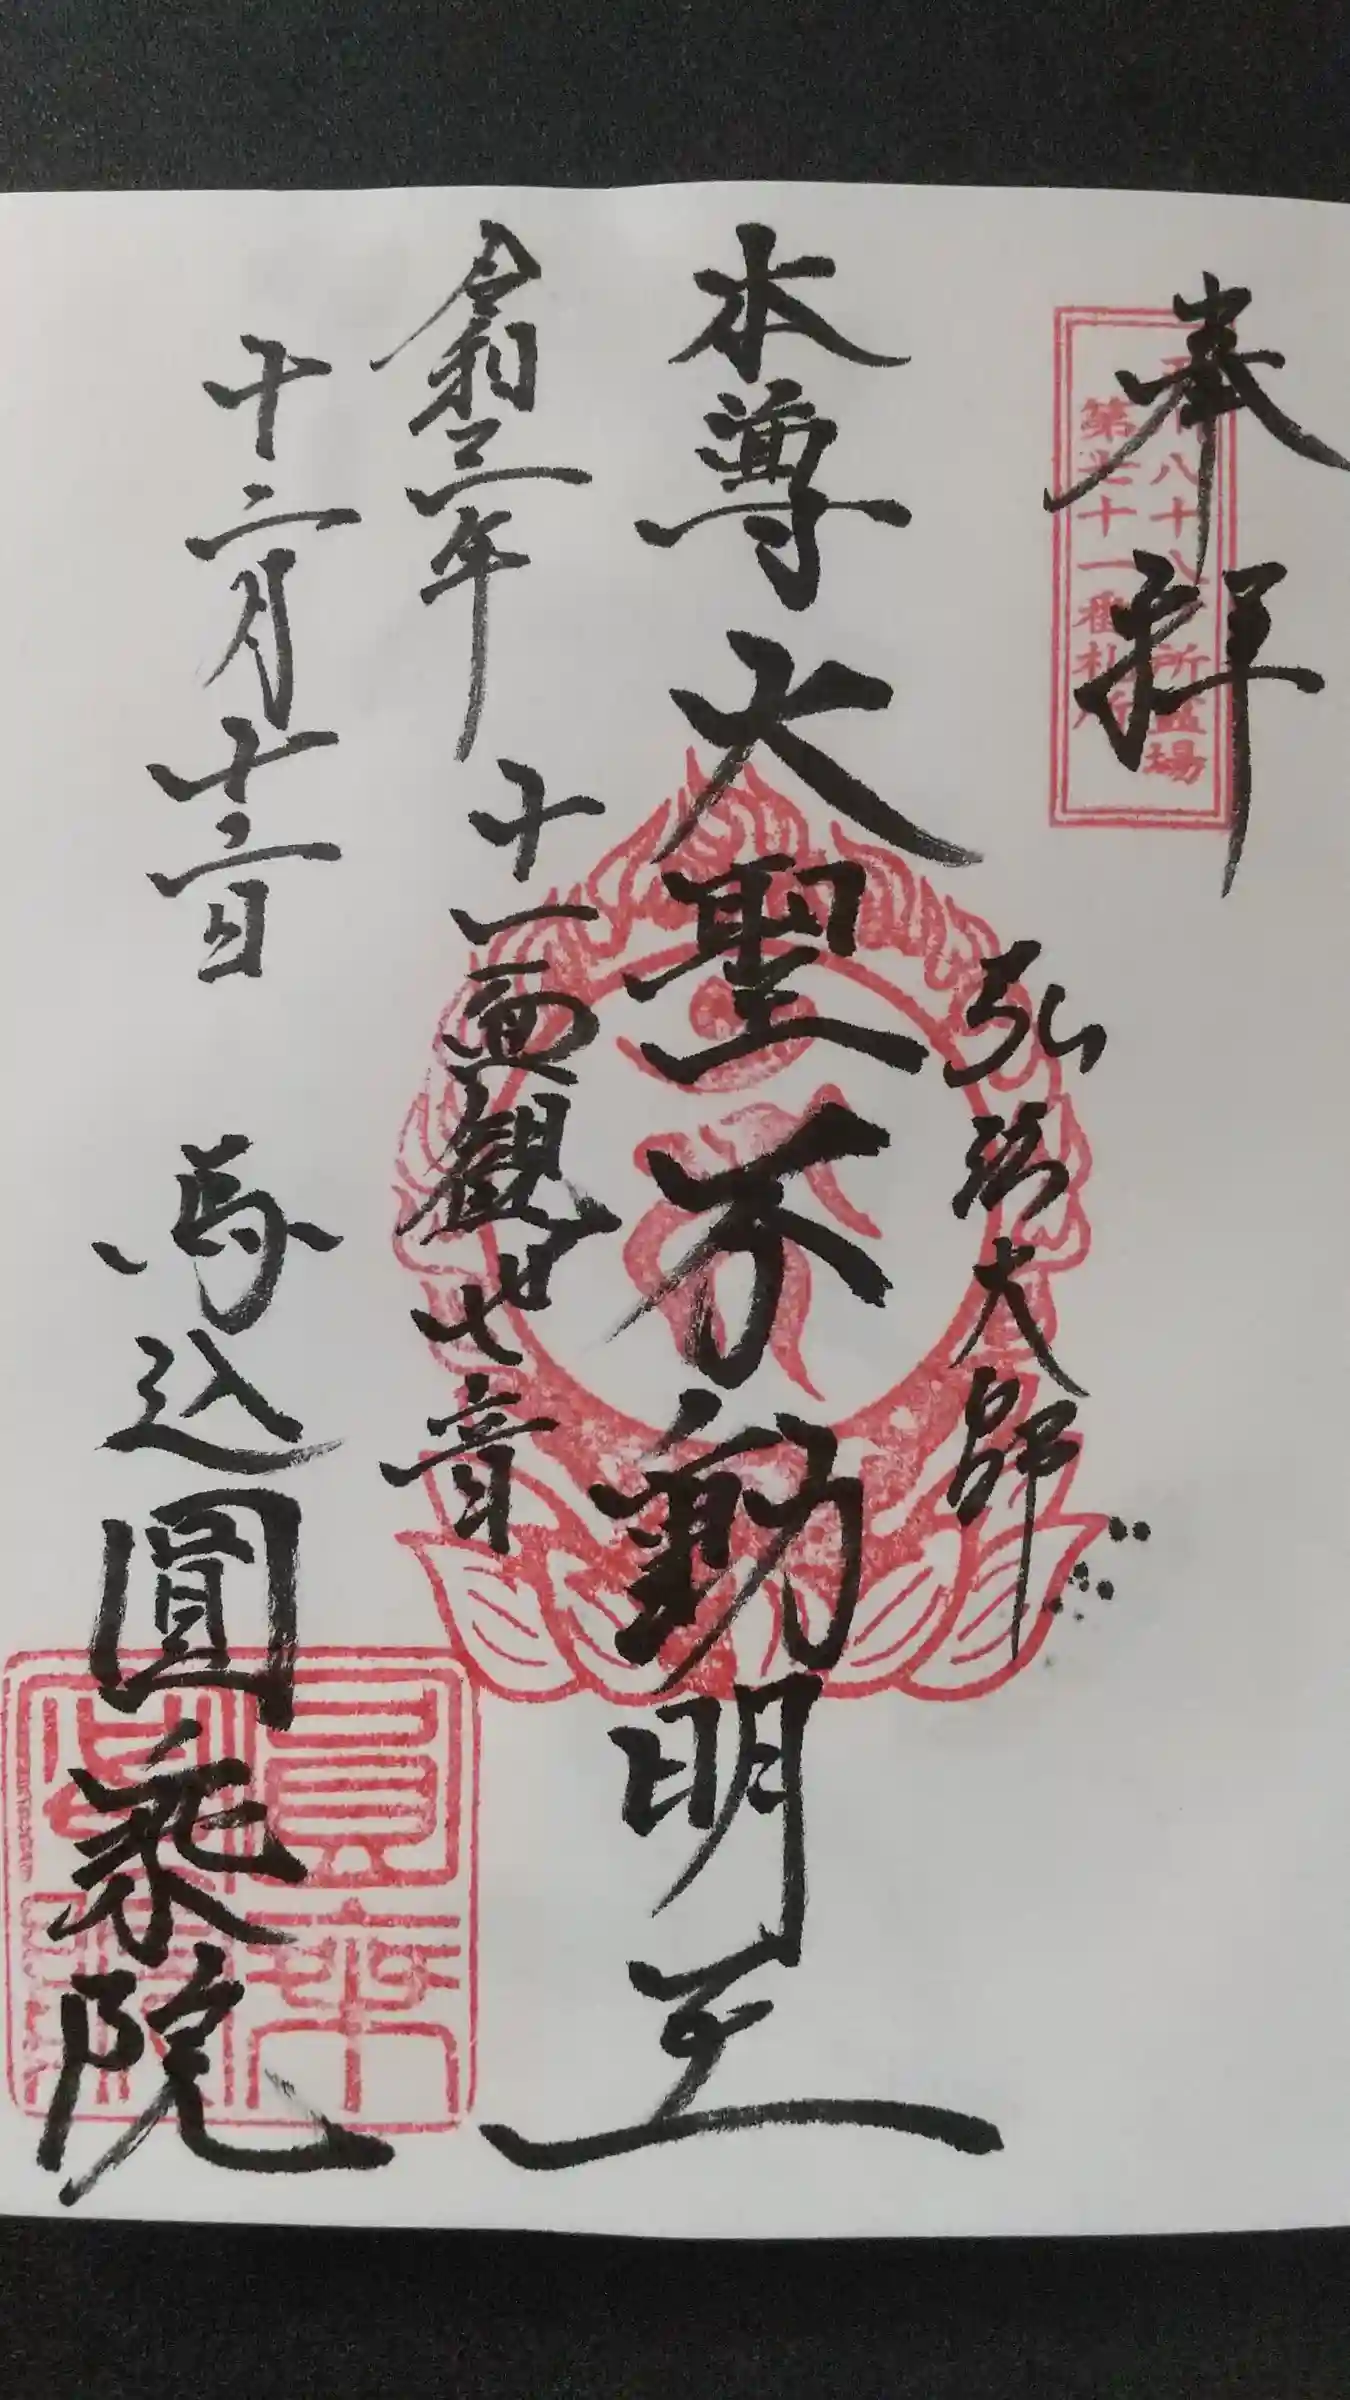 奉拝
玉川八十八ヶ所霊場
第七十一番札所
弘法大師
本尊大聖不動明王
令和三年 十一面観世音
十二月十二日 馬込圓乗院